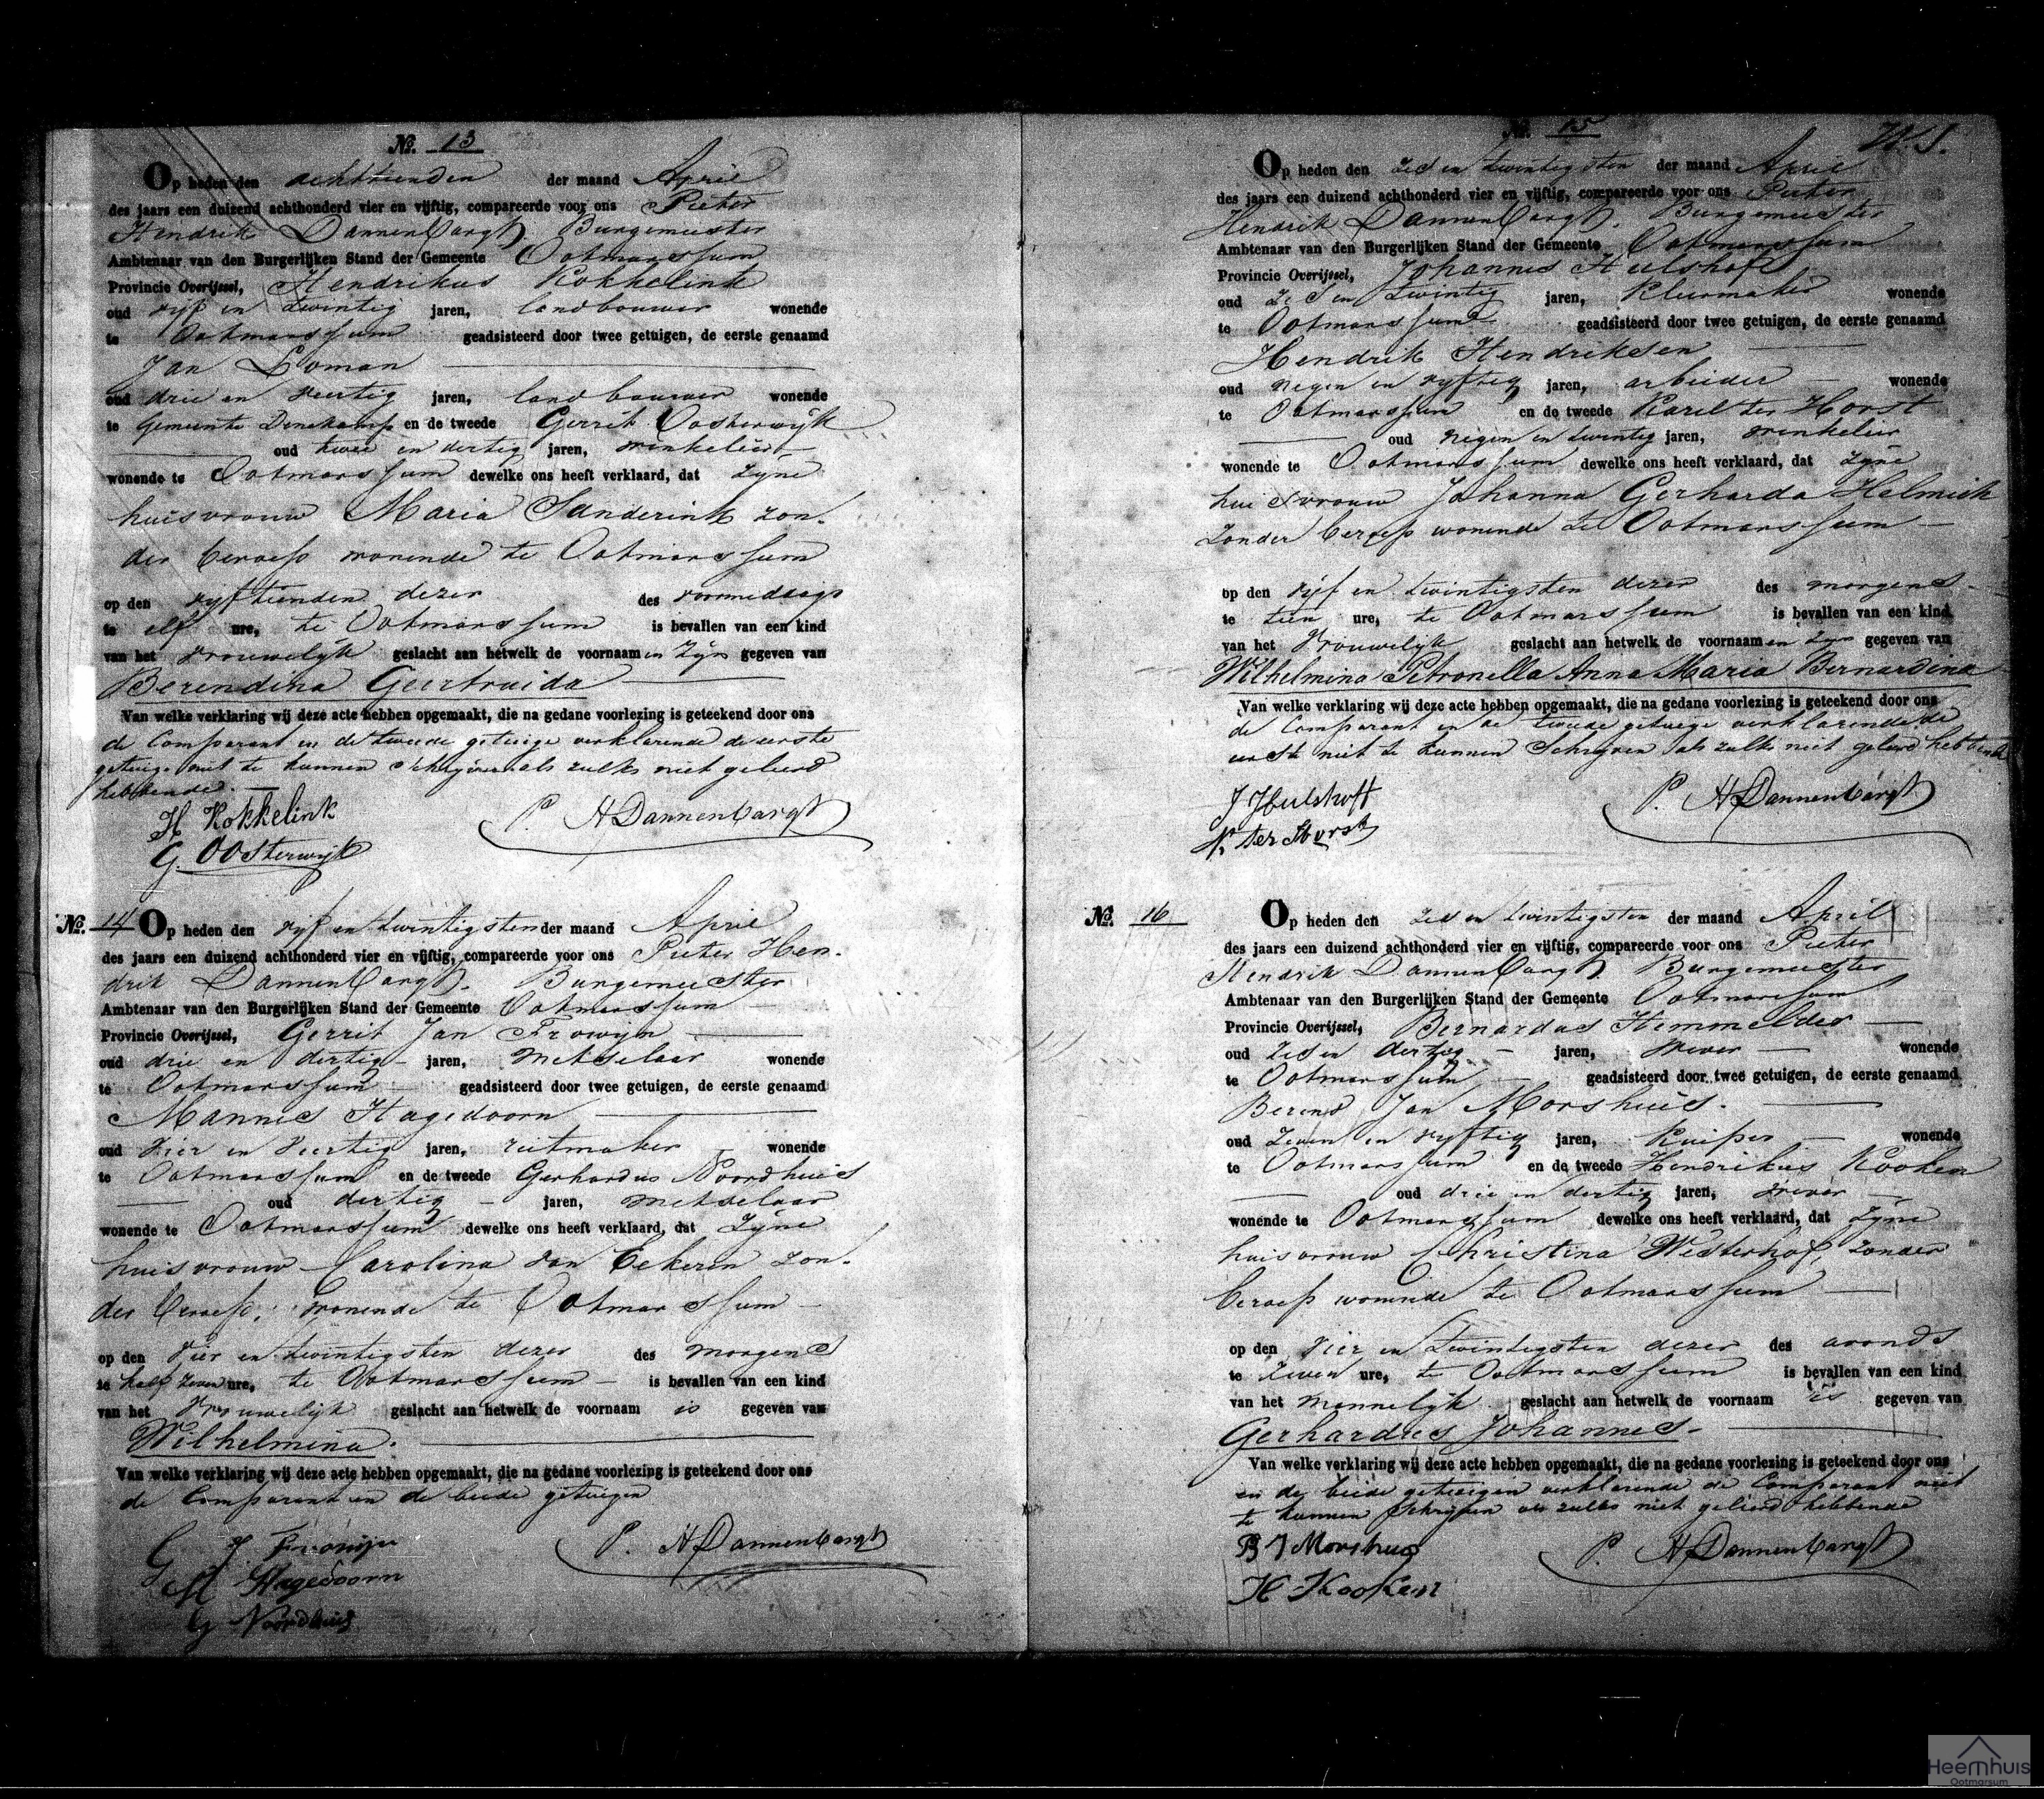 No. 13
Op heden den achttienden der maand April
des jaars een duizend achthonderd vier en vijftig, compareerde voor ons Pieter
Hendrik Dannenbargh, Burgemeester
Ambtenaar van den Burgerlijken Stand der Gemeente Ootmarssum
Provincie Overijssel, Hendrikus Kokkelink
oud vijf en twintig jaren, landbouwer wonende
te Ootmarssum geadsisteerd door twee getuigen, de eerste genaamd
Jan Loman
oud drie en veertig jaren, landbouwer wonende
te Gemeente Denekamp en de tweede Gerrit Oosterwijk
oud twee en dertig jaren, winkelier
wonende te Ootmarssum dewelke ons heeft verklaard, dat zijne
huisvrouw Maria Sanderink zon-
der beroep wonende te Ootmarssum
op den vijftienden dezer des voormiddags
te elf ure, te Ootmarssum is bevallen van een kind
van het vrouwelijk geslacht aan hetwelk de voornaamen zijn gegeven van
Berendina Geertruida
Van welke verklaring wij deze acte hebben opgemaakt, die na gedane voorlezing is geteekend door ons
de Comparant en de tweede getuige verklarende de eerste
getuige niet te kunnen schrijven als zulks niet geleerd
hebbende.
H Kokkelink P. H Dannenbargh
G. Oosterwijk
No. 14 Op heden den vijf en twintigsten der maand April
des jaars een duizend achthonderd vier en vijftig, compareerde voor ons Pieter Hen-
drik Dannenbargh. Burgemeester
Ambtenaar van den Burgerlijken Stand der Gemeente Ootmarssum
Provincie Overijssel, Gerrit Jan Frowyn
oud drie en dertig jaren, metselaar wonende
te Ootmarssum geadsisteerd door twee getuigen, de eerste genaamd
Mannes Hagedoorn
oud vier en veertig jaren, rietmaker wonende
te Ootmarssum en de tweede Gerhardus Noordhuis
oud dertig jaren, metselaar
wonende te Ootmarssum dewelke ons heeft verklaard, dat zijne
huisvrouw Carolina van Bekeren zon-
der beroep, wonende te Ootmarssum
op den vier en twintigsten dezer des morgens
te half zeven ure, te Ootmarssum is bevallen van een kind
van het vrouwelijk geslacht aan hetwelk de voornaam is gegeven van
Wilhelmina.
Van welke verklaring wij deze acte hebben opgemaakt, die na gedane voorlezing is geteekend door ons
de Comparant en de beide getuigen
G J Frowijn P. H Dannenbargh
M Hagedoorn
G Noordhuis
No. 15
Op heden den zes en twintigsten der maand April
des jaars een duizend achthonderd vier en vijftig, compareerde voor ons Pieter
Hendrik Dannenbargh. Burgemeester
Ambtenaar van den Burgerlijken Stand der Gemeente Ootmarssum
Provincie Overijssel, Johannes Hulshoff
oud zes en twintig jaren, kleermaker wonende
te Ootmarssum geadsisteerd door twee getuigen, de eerste genaamd
Hendrik Hendriksen
oud negen en vijftig jaren, arbeider wonende
te Ootmarssum en de tweede Karel ter Horst
oud negen en twintig jaren, winkelier
wonende te Ootmarssum dewelke ons heeft verklaard, dat zijne
huisvrouw Johanna Gerharda Helmich
zonder beroep wonende te Ootmarssum
op den vijf en twintigsten dezer des morgens
te tien ure, te Ootmarssum is bevallen van een kind
van het vrouwelijk geslacht aan hetwelk de voornaamen zijn gegeven van
Wilhelmina Petronella Anna Maria Bernardina
Van welke verklaring wij deze acte hebben opgemaakt, die na gedane voorlezing is geteekend door ons
de Comparant en de tweede getuige verklarende de
eerste niet te kunnen schrijven als zulks niet geleerd hebbende
J Hulshoff P. H Dannenbargh
K. ter Horst
No. 16 Op heden den zes en twintigsten der maand April
des jaars een duizend achthonderd vier en vijftig, compareerde voor ons Pieter
Hendrik Dannenbargh Burgemeester
Ambtenaar van den Burgerlijken Stand der Gemeente Ootmarssum
Provincie Overijssel, Bernardus Hemmelder
oud zes en dertig jaren, wever wonende
te Ootmarssum geadsisteerd door twee getuigen, de eerste genaamd
Berend Jan Morshuis.
oud zeven en vijftig jaren, kuiper wonende
te Ootmarssum en de tweede Hendrikus Kooken
oud drie en dertig jaren, wever
wonende te Ootmarssum dewelke ons heeft verklaard, dat zijne
huisvrouw Christina Westerhof, zonder
beroep wonende te Ootmarssum
op den vier en twintigsten dezer des avonds
te zeven ure, te Ootmarssum is bevallen van een kind
van het mannelijk geslacht aan hetwelk de voornaam is gegeven van
Gerhardus Johannes.
Van welke verklaring wij deze acte hebben opgemaakt, die na gedane voorlezing is geteekend door ons
en de beide getuigen verklarende de Comparant niet
te kunnen schrijven als zulks niet geleerd hebbende
B J Morshuis P. H Dannenbargh
H Kooken
Heemhuis
Ootmarsum